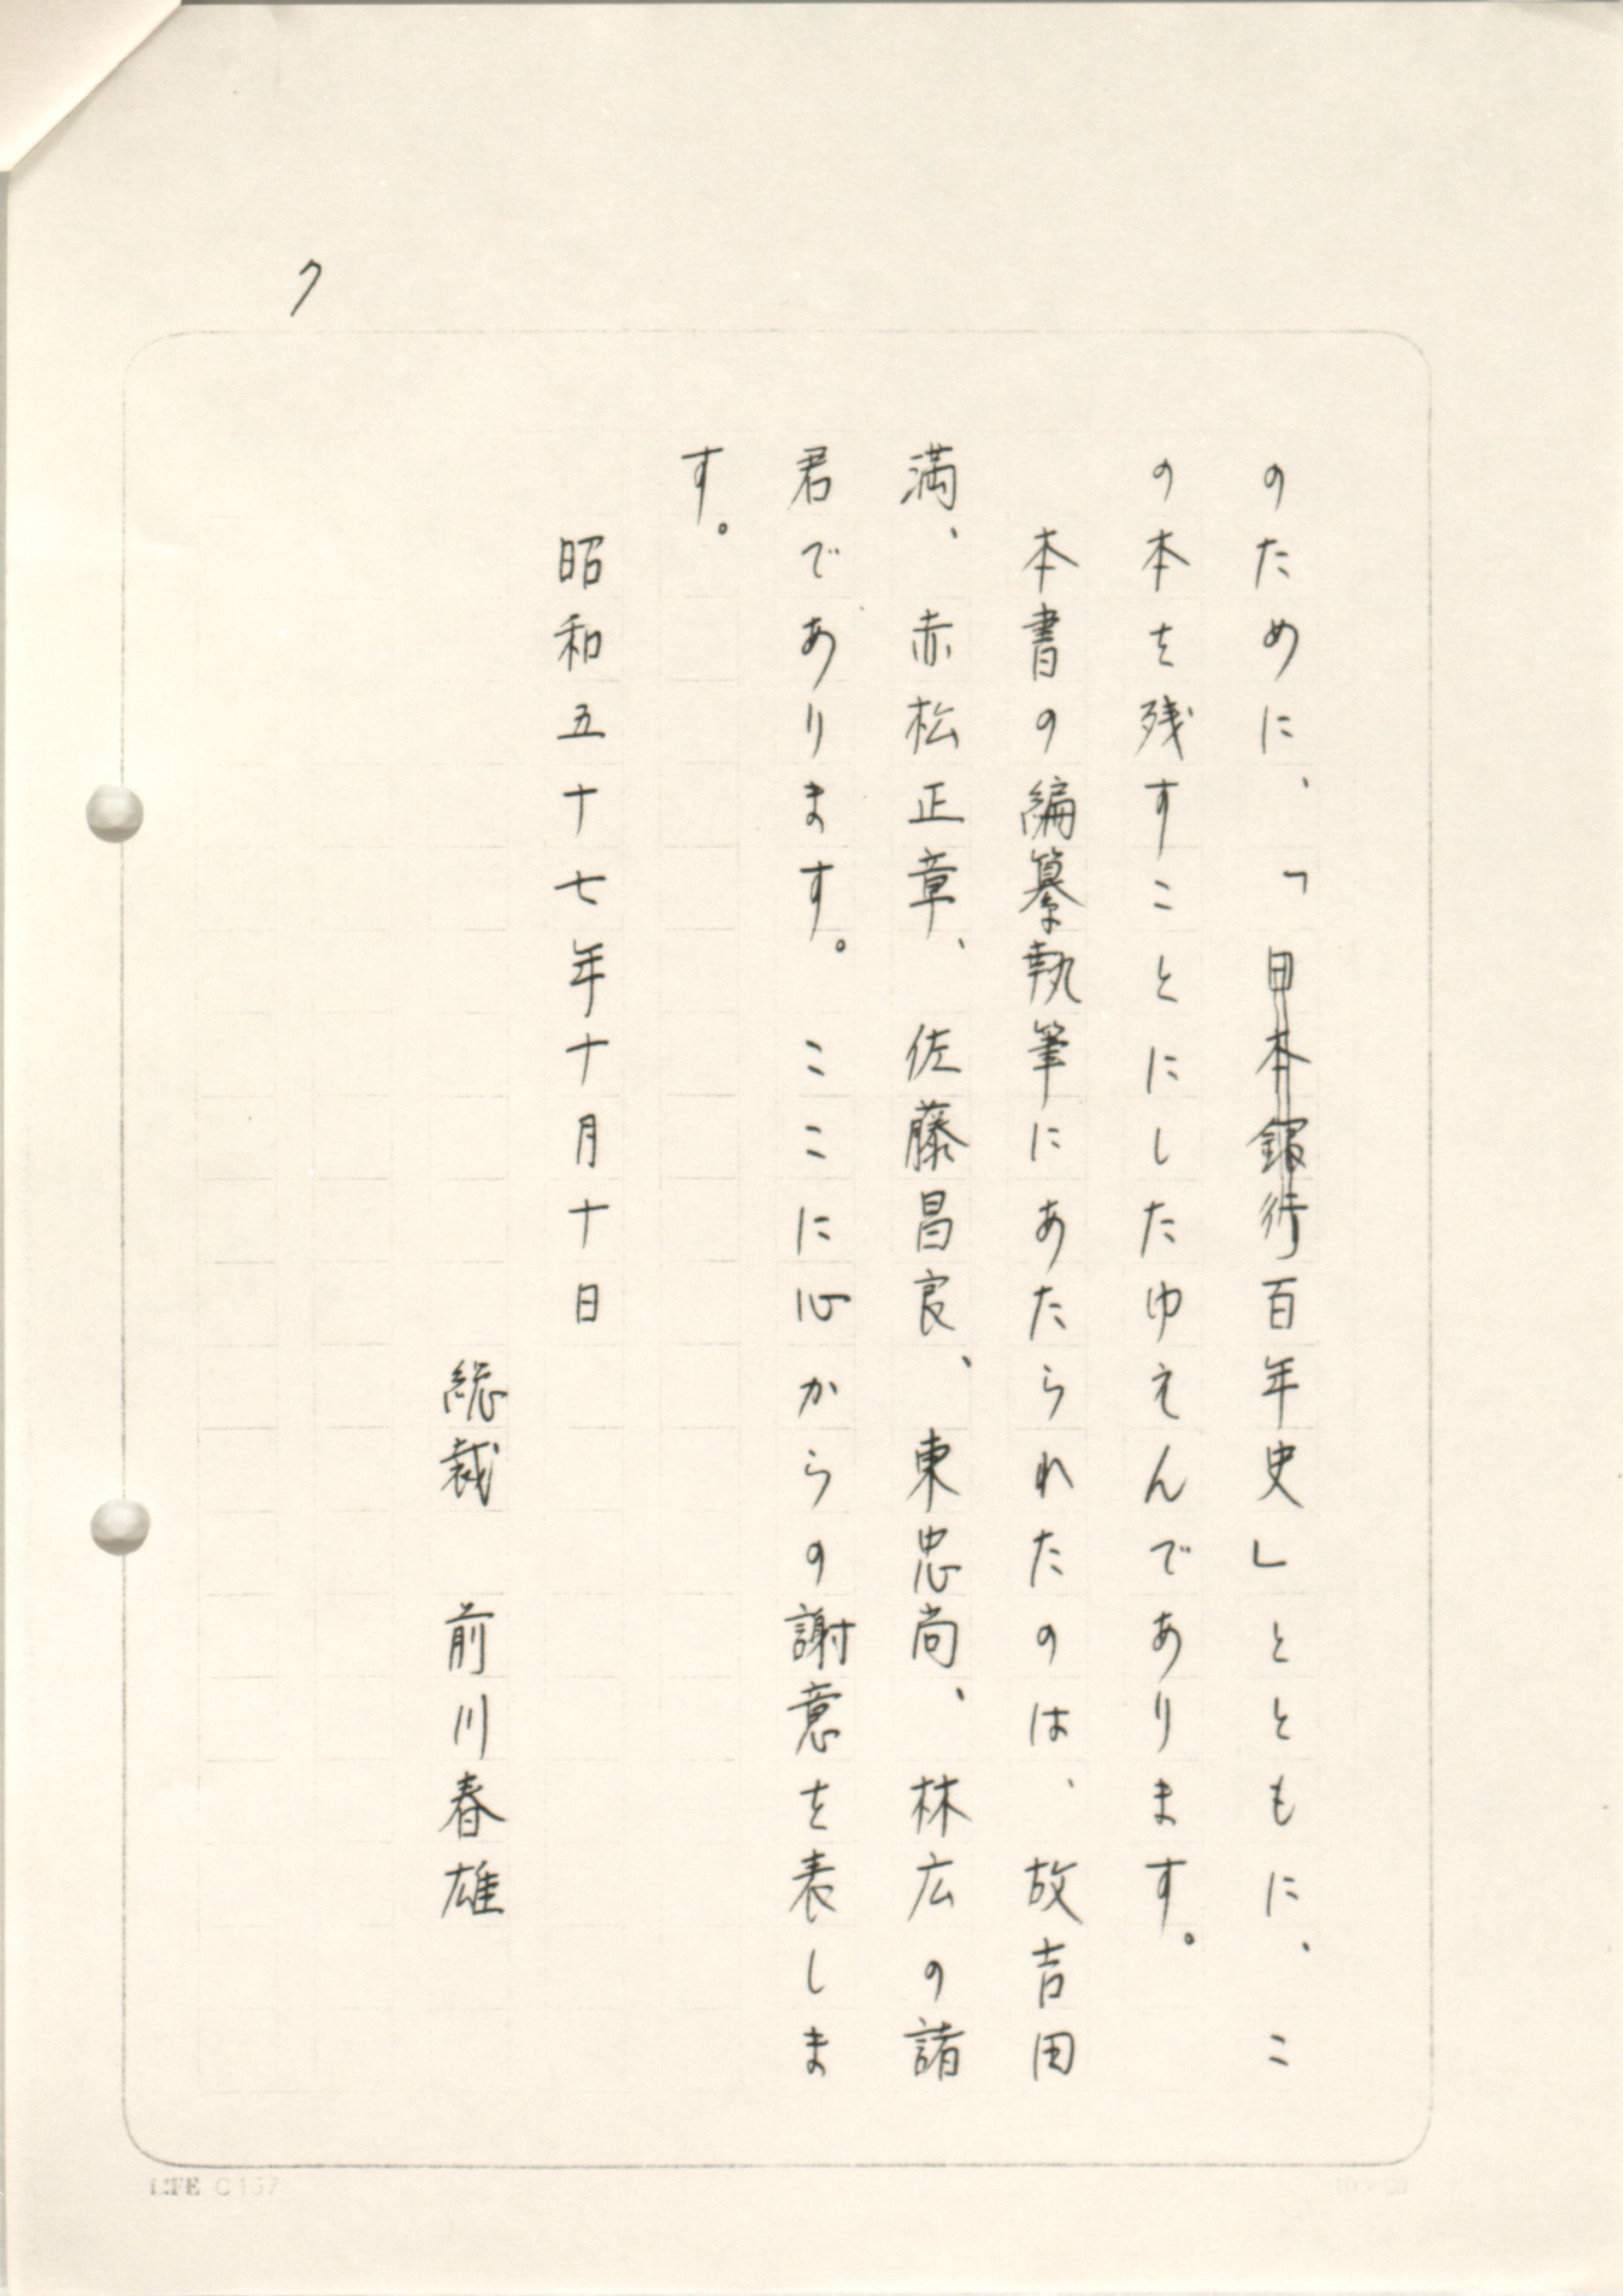 7
のために、「日本銀行百年史」とともに、こ
の本を残すことにしたゆえんであります。
本書の編纂執筆にあたられたのは、故吉田
満、赤松正章、佐藤昌良、東忠尚、林広の諸
君であります。ここに心からの謝意を表しま
す。
昭和五十七年十月十日
総裁 前川春雄
LIFE C157